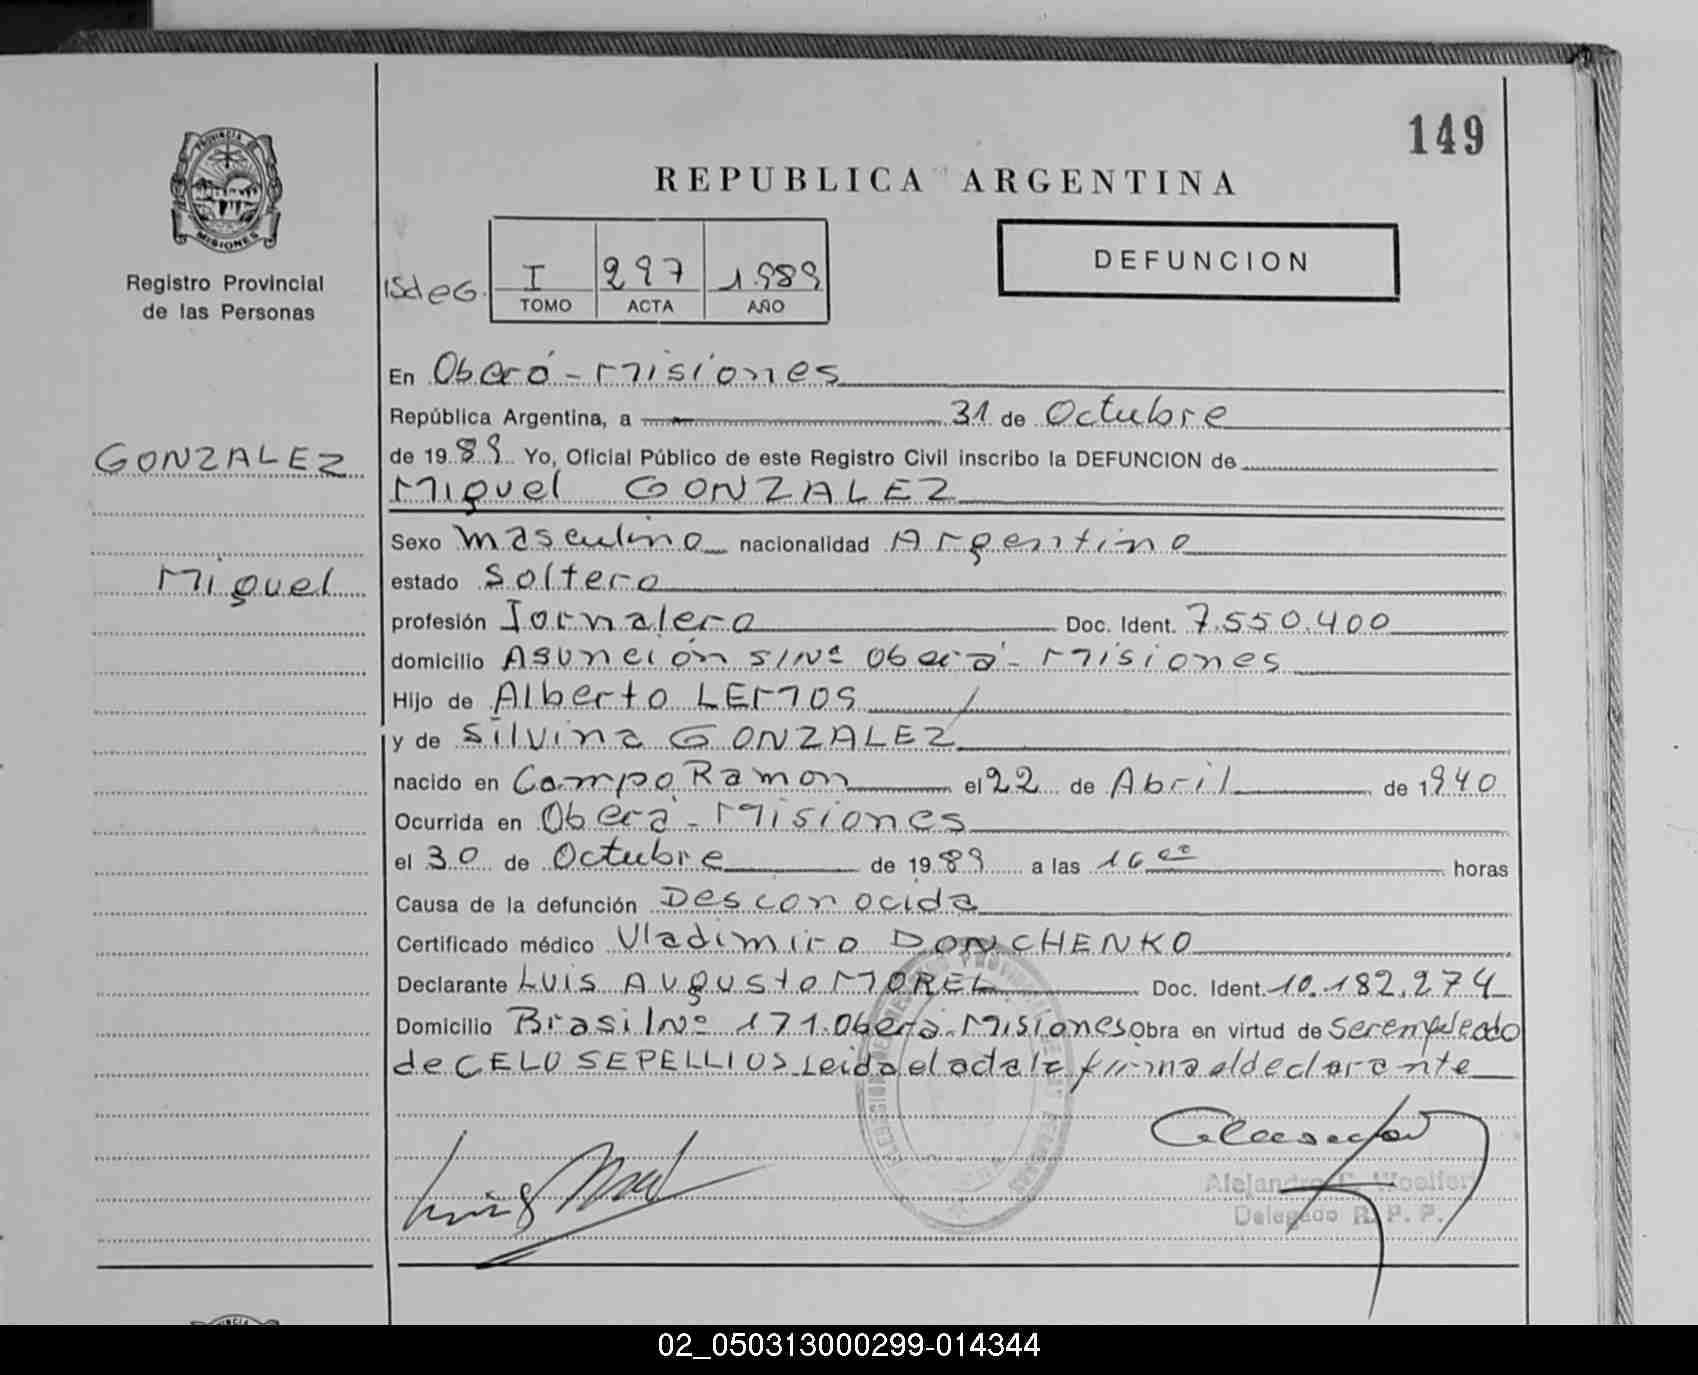 149
PROVINCIA DE
MISIONES
Registro Provincial
de las Personas
REPUBLICA ARGENTINA
DEFUNCION
I 297 1.989
TOMO ACTA AÑO
GONZALEZ
Miguel
En Oberá - Misiones
República Argentina, a 31 de Octubre
de 1989 Yo, Oficial Público de este Registro Civil inscribo la DEFUNCION de
Miguel GONZALEZ
Sexo masculino nacionalidad Argentino
estado Soltero
profesión Jornalero Doc. Ident. 7.550.400
domicilio Asunción S/Nº Oberá - Misiones
Hijo de Alberto LEMOS
y de Silvina GONZALEZ
nacido en Campo Ramon el 22 de Abril de 1940
Ocurrida en Oberá - Misiones
el 30 de Octubre de 1989 a las 16 oo horas
Causa de la defunción Desconocida
Certificado médico Vladimiro DONCHENKO
Declarante LUIS AUgUSto MOREL Doc. Ident. 10.182.274
Domicilio Brasil Nº 171 Oberá - Misiones Obra en virtud de ser empleado
de CELU SEPELLIOS Leida el acta la firma el declarante
Delegado R. P. P.
02_050313000299-014344